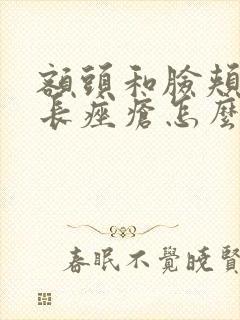 額頭和臉頰
長痤瘡怎麼
春眠不覺曉賢